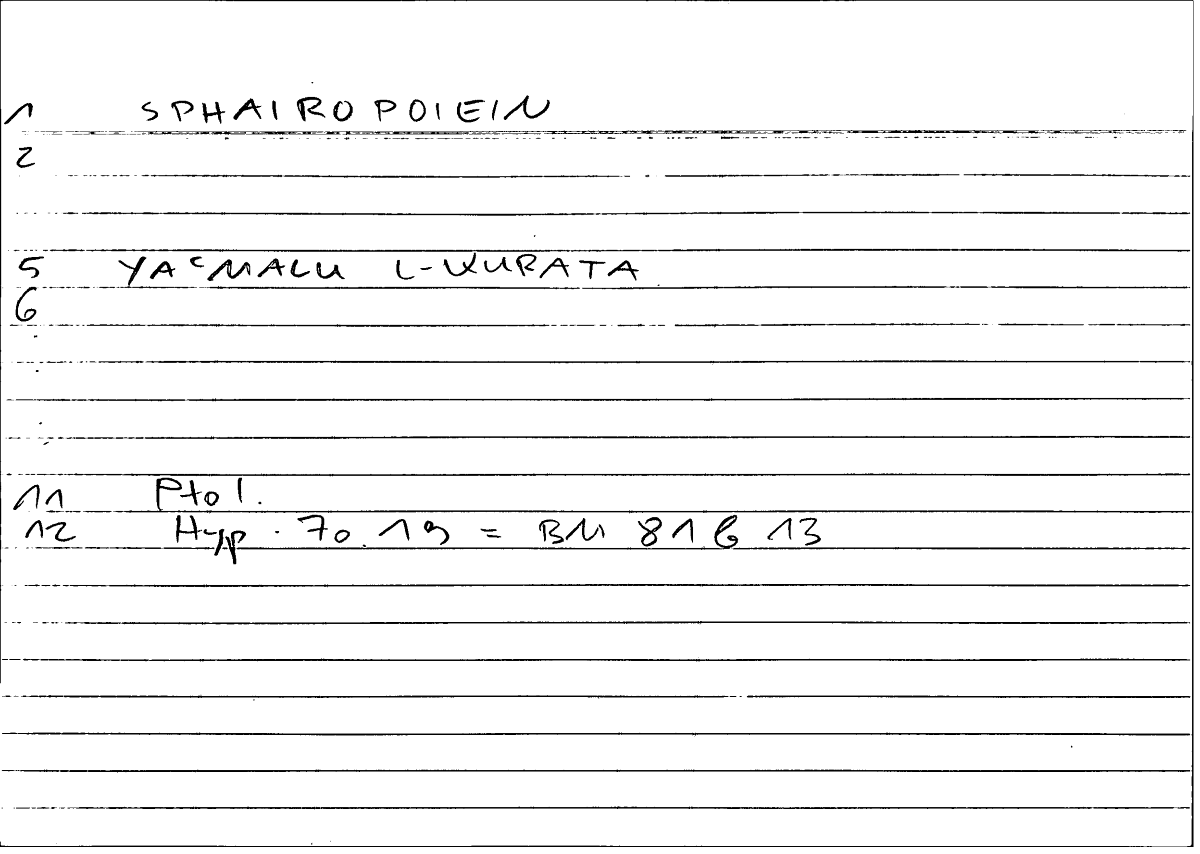 1 SPHAIROPOIEIN
2
5 YAʿMALU L-KURATA
6
11 Ptol.
12 Hyp. 70.19 = BM 81b 13